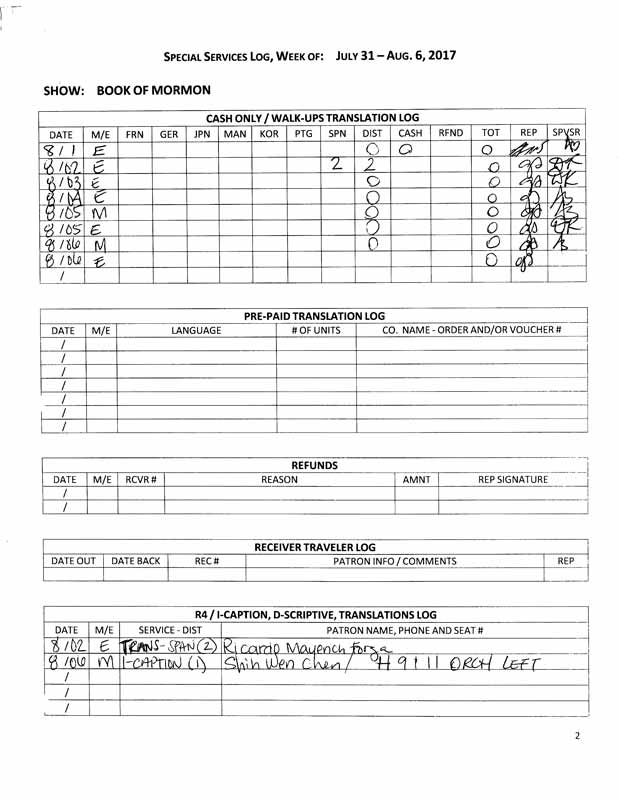 SPECIAL SERVICES LOG, WEEK OF: JULY 31 – AUG. 6, 2017
SHOW: BOOK OF MORMON
CASH ONLY / WALK-UPS TRANSLATION LOG
DATE M/E FRN GER JPN MAN KOR PTG SPN DIST CASH RFND TOT REP SPVSR
8/1 E 0 0 0
8/02 E 2 2 0
8/03 E 0 0
8/04 E 0 0
8/05 M 0 0
8/05 E 0 0
8/06 M 0 0
8/06 E 0
/
PRE-PAID TRANSLATION LOG
DATE M/E LANGUAGE # OF UNITS CO. NAME - ORDER AND/OR VOUCHER #
/
/
/
/
/
/
/
REFUNDS
DATE M/E RCVR # REASON AMNT REP SIGNATURE
/
/
RECEIVER TRAVELER LOG
DATE OUT DATE BACK REC # PATRON INFO / COMMENTS REP
R4 / I-CAPTION, D-SCRIPTIVE, TRANSLATIONS LOG
DATE M/E SERVICE - DIST PATRON NAME, PHONE AND SEAT #
8/02 E TRANS-SPAN (2) Ricardo Mayench
8/06 M I-CAPTION (1) Shih Wen Chen / H 9 11 ORCH LEFT
/
/
/
2